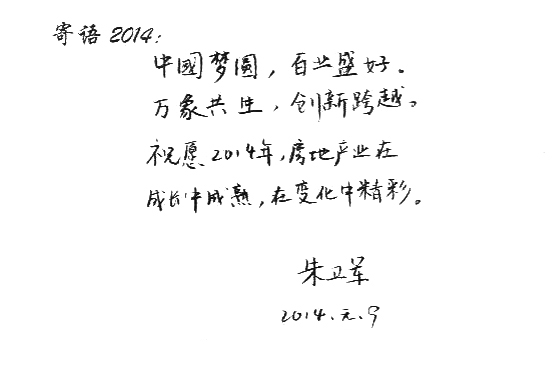 寄语2014:
中國梦圆，百业盛好。
万象共生，创新跨越。
祝愿2014年，房地产业在
成长中成熟，在变化中精彩。
朱卫军
2014.元.9